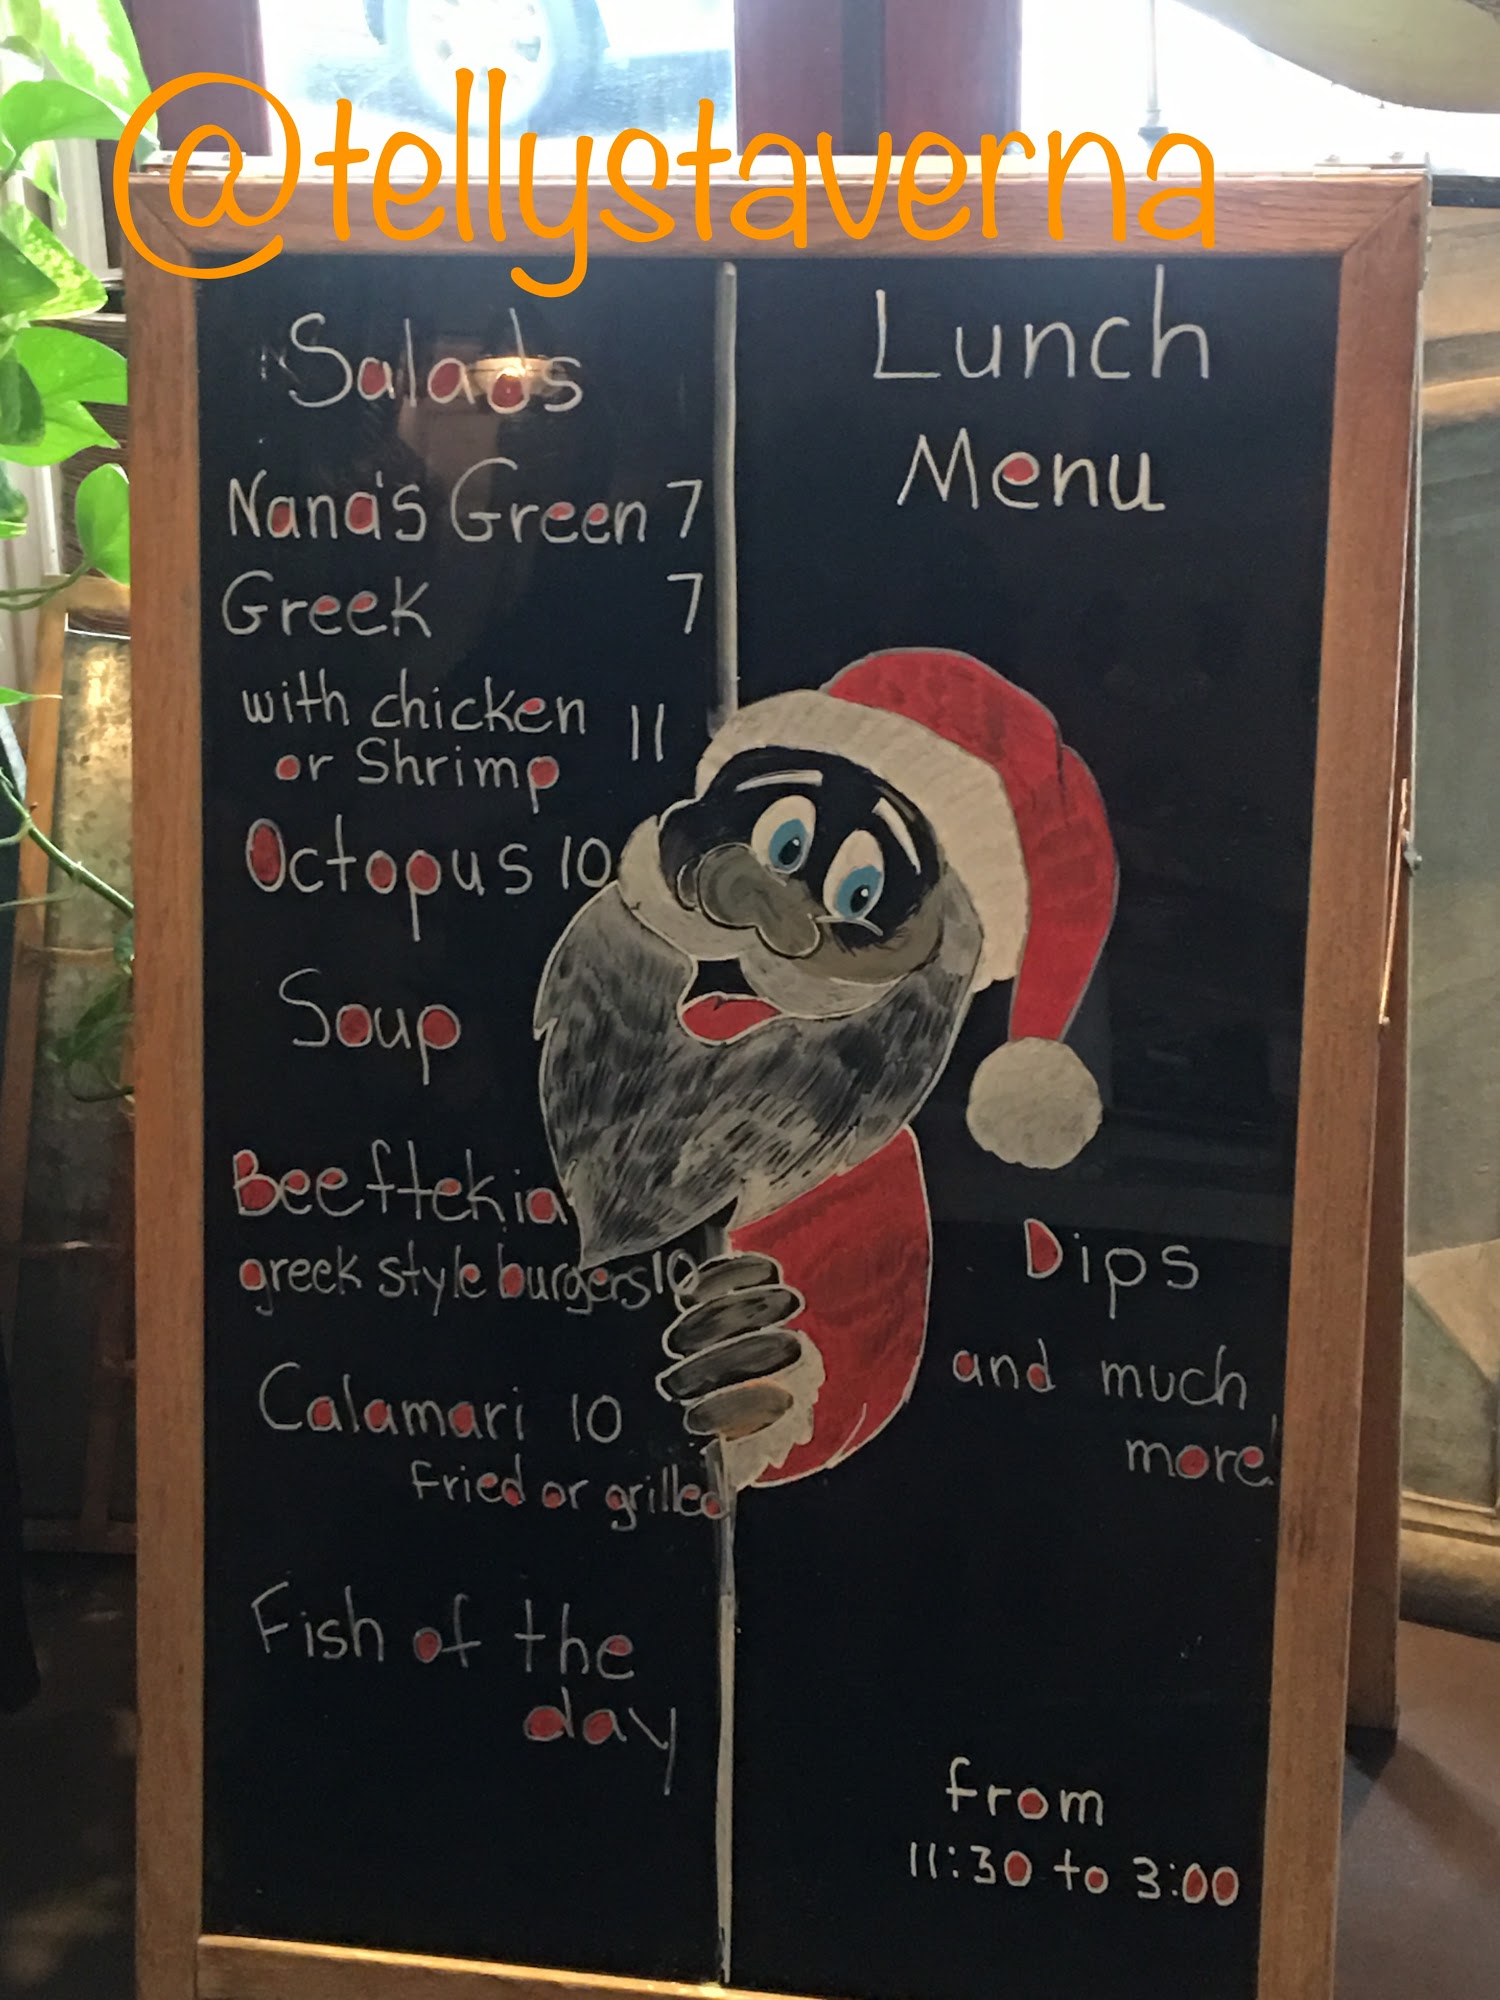 @tellystaverna
Salads
Nana's Green 7
Greek 7
with chicken 11
or Shrimp
Octopus 10
Soup
Beeftekia
greek style burgers 10
Calamari 10
Fried or grilled
Fish of the
day
Lunch
Menu
Dips
and much
more!
from
11:30 to 3:00